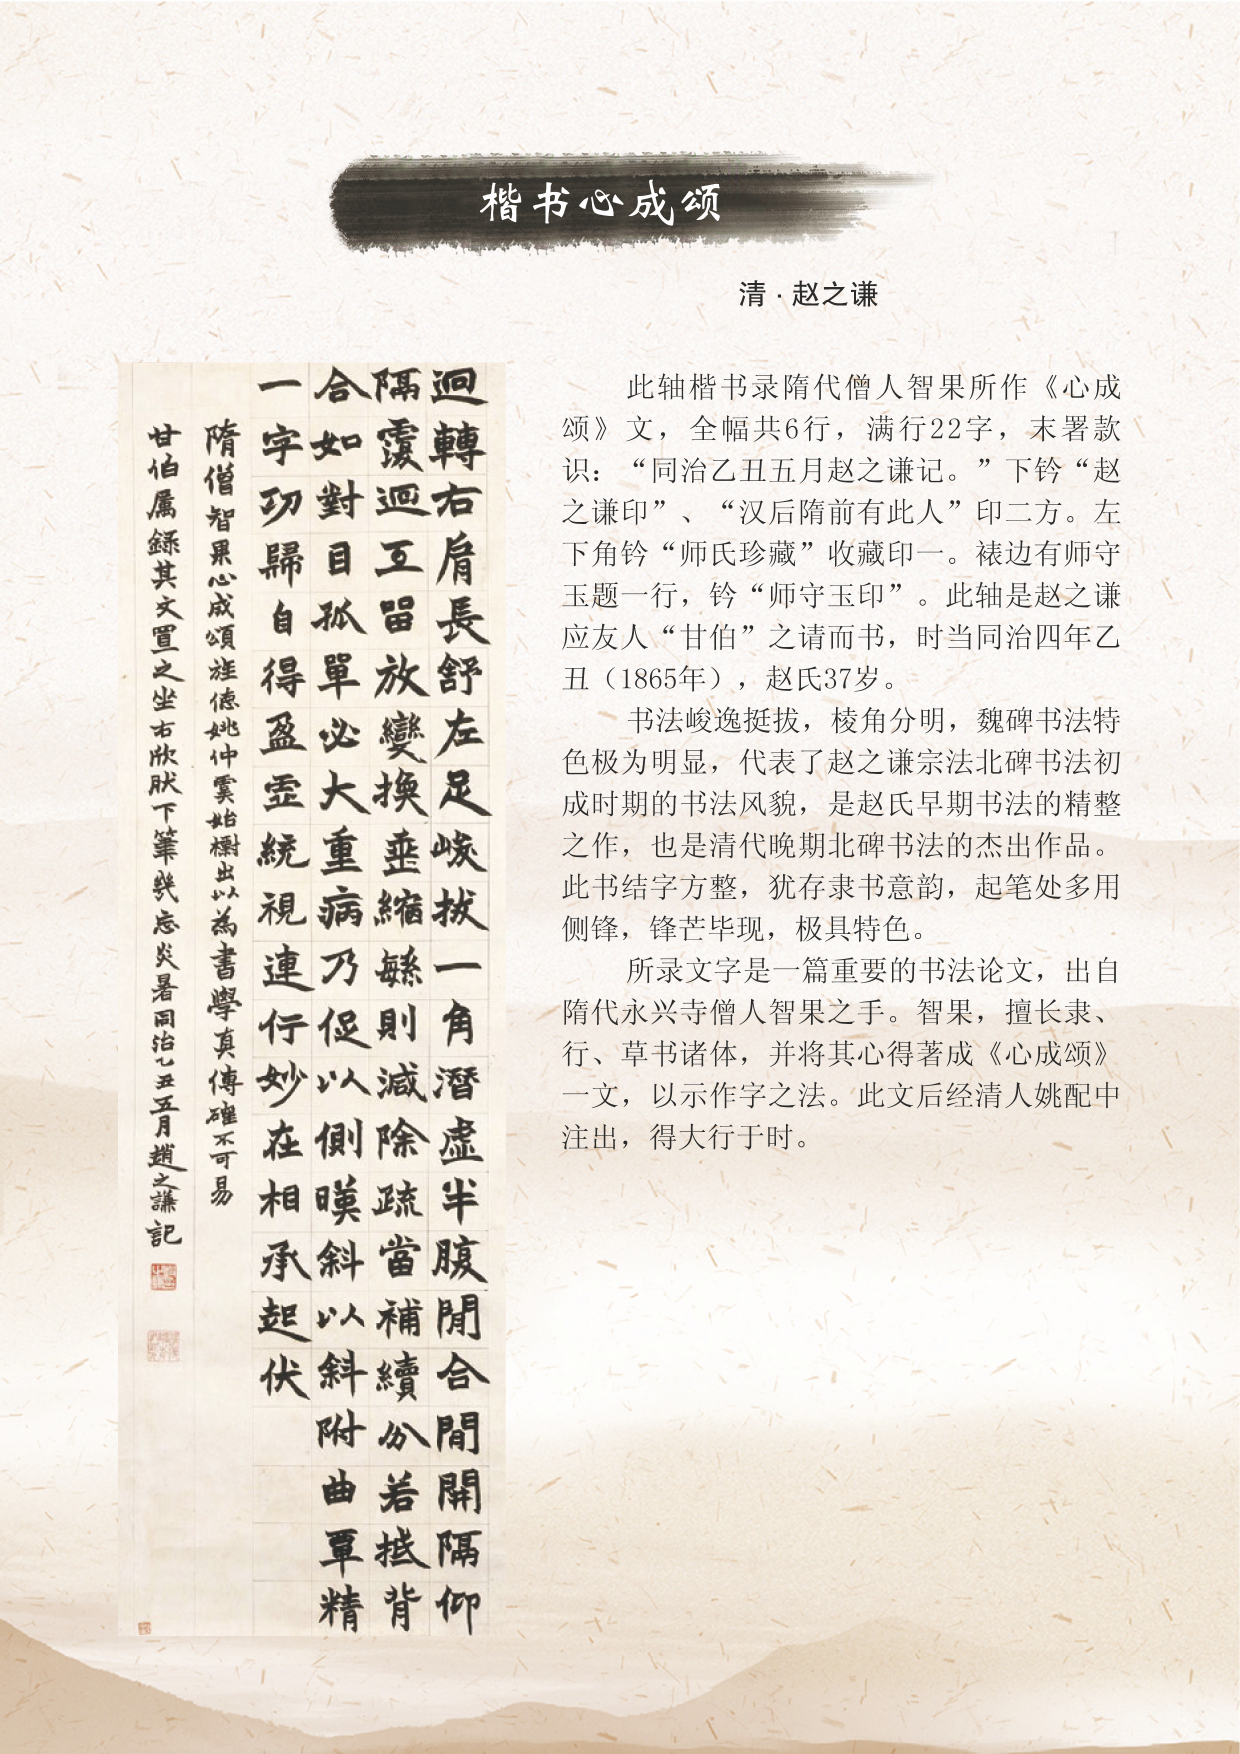 楷书心成颂
清·赵之谦
迴轉右肩長舒左足峻拔一角潛虛半腹閒合間開隔仰
隔覆迴互留放變換垂縮繇則減除疏當補續分若抵背
合如對目孤單必大重病乃促以側暎斜以斜附曲覃精
一字功歸自得盈虛統視連行妙在相承起伏
隋僧智果心成頌旌德姚仲虞始櫥出以為書學真傳確不可易
甘伯屬錄其文置之坐右欣肰下筆幾忘炎暑同治乙丑五月趙之謙記
此轴楷书录隋代僧人智果所作《心成
颂》文，全幅共6行，满行22字，末署款
识：“同治乙丑五月赵之谦记。”下钤“赵
之谦印”、“汉后隋前有此人”印二方。左
下角钤“师氏珍藏”收藏印一。裱边有师守
玉题一行，钤“师守玉印”。此轴是赵之谦
应友人“甘伯”之请而书，时当同治四年乙
丑（1865年），赵氏37岁。
书法峻逸挺拔，棱角分明，魏碑书法特
色极为明显，代表了赵之谦宗法北碑书法初
成时期的书法风貌，是赵氏早期书法的精整
之作，也是清代晚期北碑书法的杰出作品。
此书结字方整，犹存隶书意韵，起笔处多用
侧锋，锋芒毕现，极具特色。
所录文字是一篇重要的书法论文，出自
隋代永兴寺僧人智果之手。智果，擅长隶、
行、草书诸体，并将其心得著成《心成颂》
一文，以示作字之法。此文后经清人姚配中
注出，得大行于时。